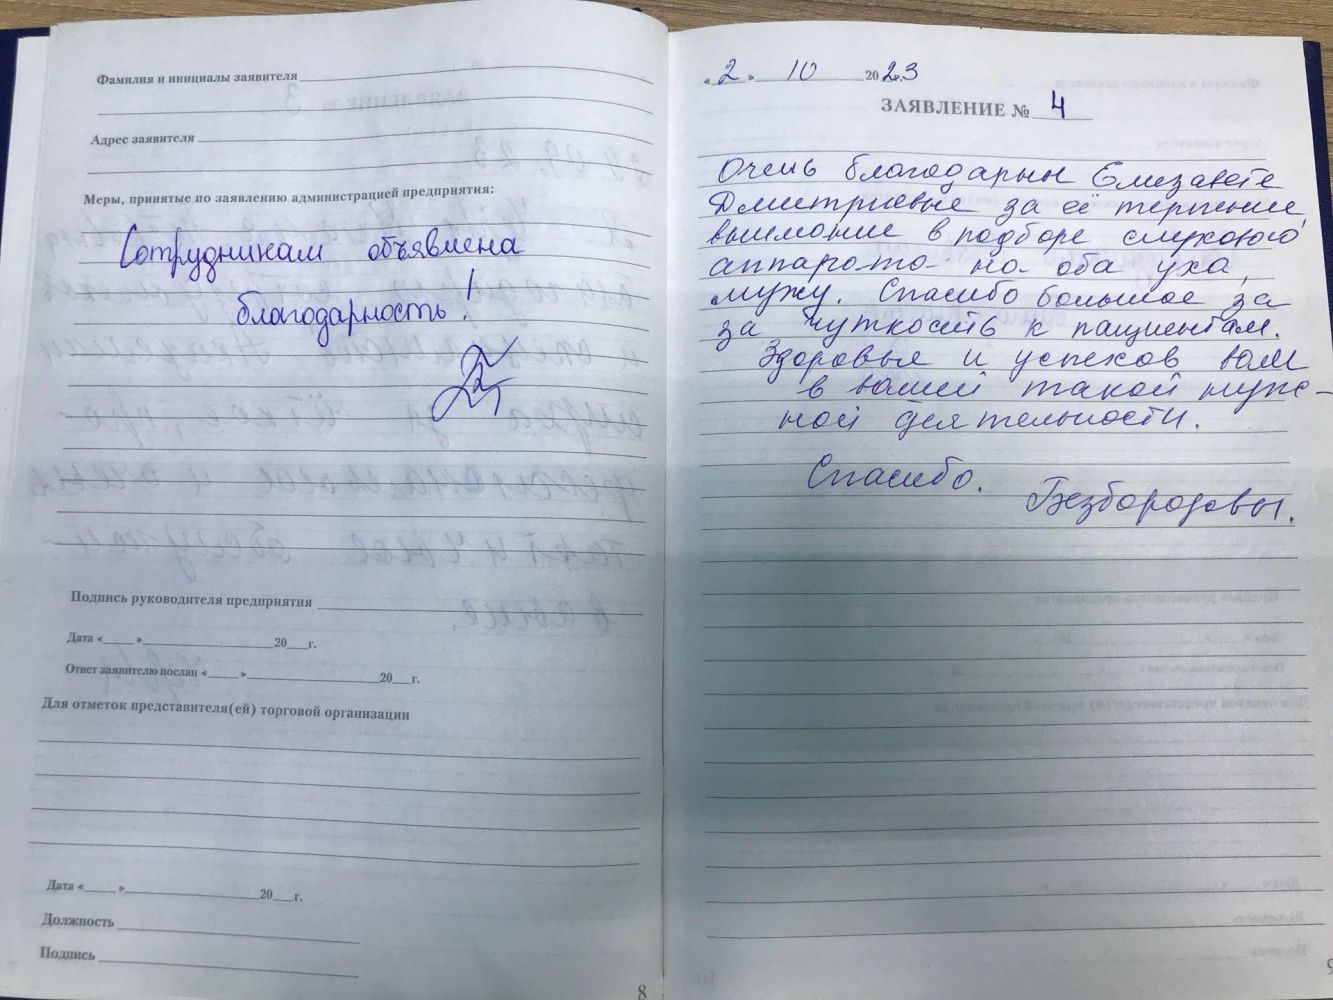 Фамилия и инициалы заявителя
Адрес заявителя
Меры, принятые по заявлению администрацией предприятия:
Сотрудникам объявлена
благодарность!
Подпись руководителя предприятия
Дата « » 20 г.
Ответ заявителю послан « » 20 г.
Для отметок представителя(ей) торговой организации
Дата « » 20 г.
Должность
Подпись
8
« 2 » 10 2023 г.
ЗАЯВЛЕНИЕ № 4
Очень благодарны Елизавете
Дмитриевые за её терпение,
внимание в подборе слухового
аппарата на оба уха,
мужу. Спасибо большое за
за чуткость к пациентам.
Здоровья и успехов вам
в вашей такой нуж-
ной деятельности.
Спасибо. Безбородовы.
9